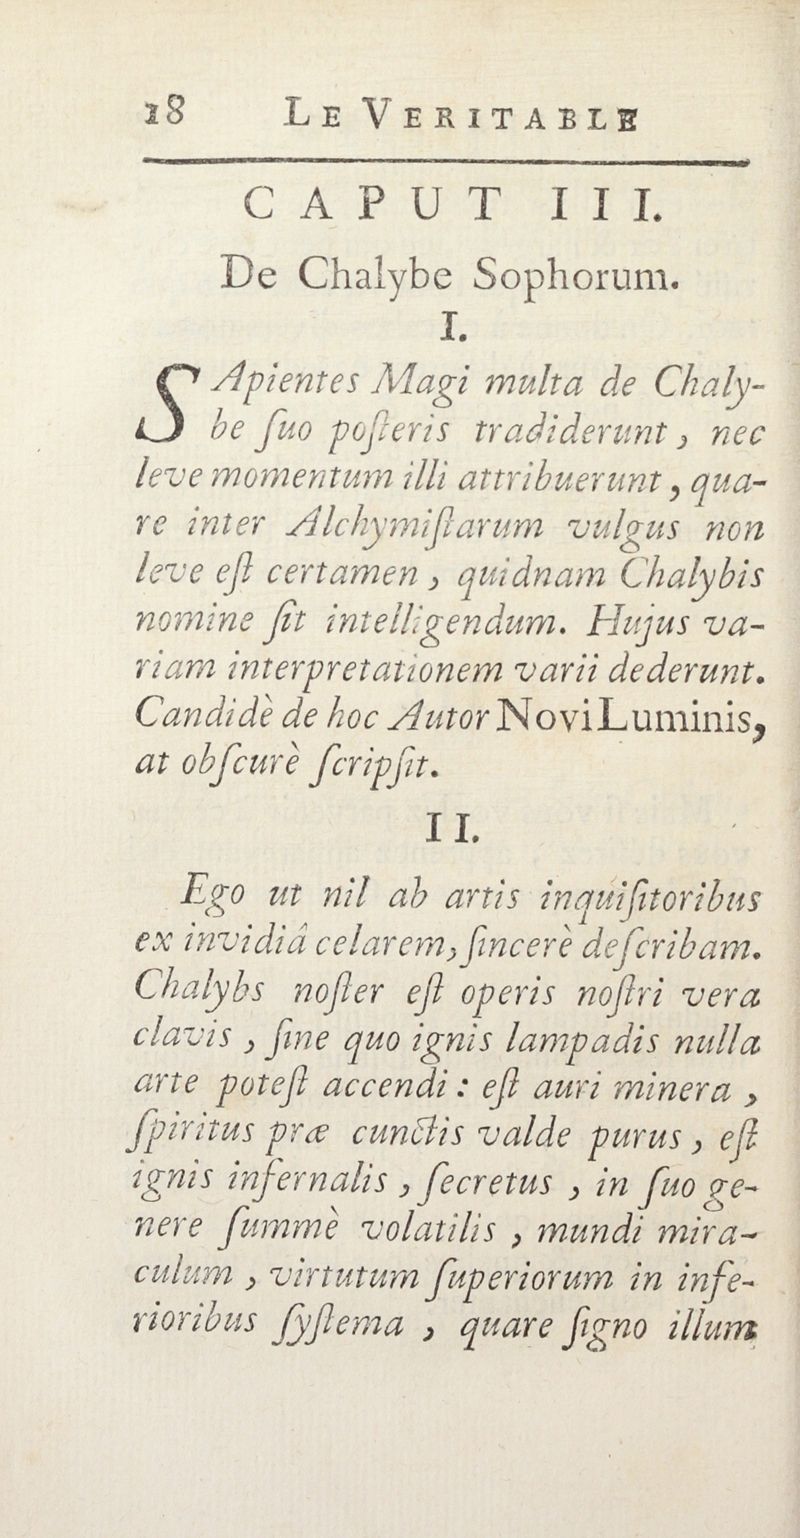 18 LE VERITABLE
CAPUT III.
De Chalybe Sophorum.
I.
SApientes Magi multa de Chaly-
be ſuo poſteris tradiderunt, nec
leve momentum illi attribuerunt, qua-
re inter Alchymiſtarum vulgus non
leve eſt certamen, quidnam Chalybis
nomine ſit intelligendum. Hujus va-
riam interpretationem varii dederunt.
Candidè de hoc Autor Novi Luminis,
at obſcurè ſcripſit.
II.
Ego ut nil ab artis inquiſitoribus
ex invidiâ celarem, ſincerè deſcribam.
Chalybs noſter eſt operis noſtri vera
clavis, ſine quo ignis lampadis nulla
arte poteſt accendi : eſt auri minera,
ſpiritus præ cunctis valde purus, eſt
ignis infernalis, ſecretus, in ſuo ge-
nere ſummè volatilis, mundi mira-
culum, virtutum ſuperiorum in infe-
rioribus ſyſtema, quare ſigno illum